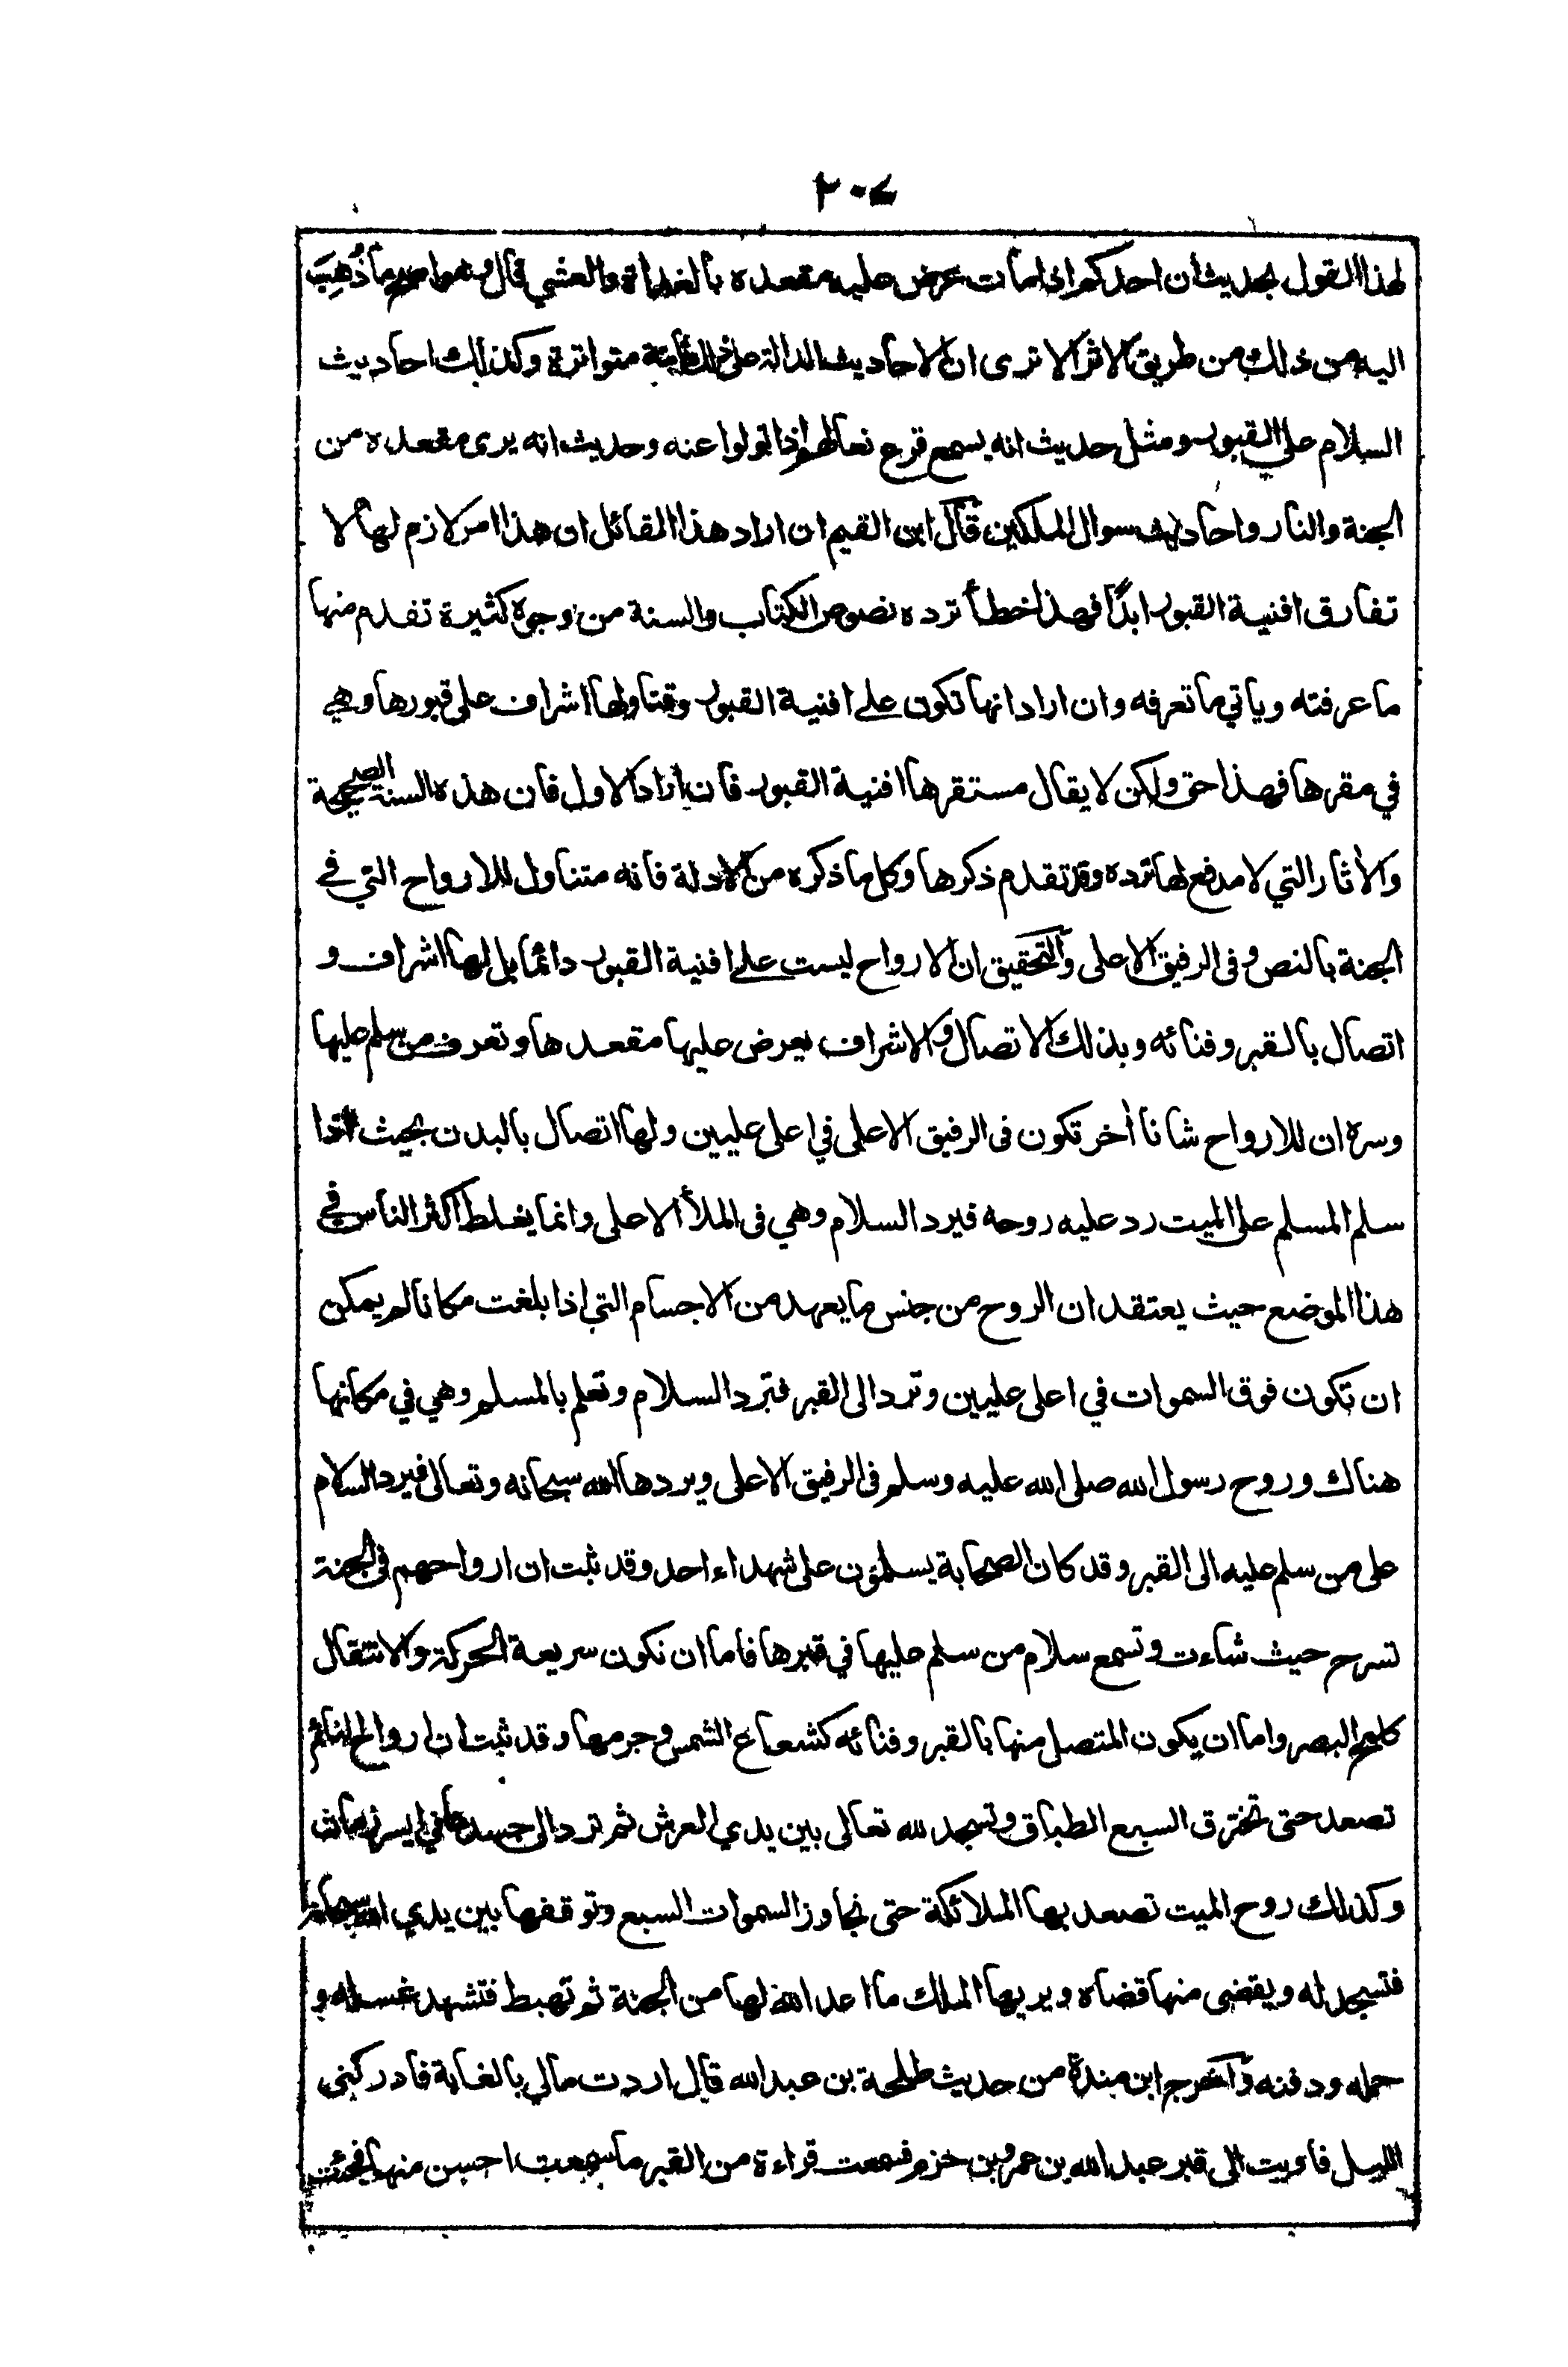 ٢٠٧
لهذا القول بحديث ان احدكم اذا مات عرض عليه مقعده بالغداة والعشي قال وهو اصح ما ذُهِبَ
اليه من ذلك من طريق الاثر الا ترى ان الاحاديث الدالة على ذلك ثابتة متواترة وكذلك احاديث
السلام على القبور ومثل حديث انه يسمع قرع نعالهم اذا تولوا عنه وحديث انه يرى مقعده من
الجنة والنار واحاديث سوال الملكين قال ابن القيم ان اراد هذا القائل ان هذا امر لازم لها لا
تفارق افنية القبور ابدًا فهذا خطأ ترده نصوص الكتاب والسنة من وجوه كثيرة تقدم منها
ما عرفته وياتي ما تعرفه وان اراد انها تكون على افنية القبور وقتا ولها اشراف على قبورها وهي
في مقرها فهذا حق ولكن لا يقال مستقرها افنية القبور فان اراد الاول فان هذه السنة الصحيحة
والأثار التي لا مدفع لها ترده وقد تقدم ذكرها وكل ما ذكره من الادلة فانه متناول للارواح التي في
الجنة بالنص وفى الرفيق الاعلى والتحقيق ان الارواح ليست على افنية القبور دائما بل لها اشراف و
اتصال بالقبر وفنائه وبذلك الاتصال والاشراف يعرض عليها مقعدها وتعرف من سلم عليها
وسره ان للارواح شانا أخر تكون فى الرفيق الاعلى في اعلى عليين ولها اتصال بالبدن بحيث اذا
سلم المسلم على الميت رد عليه روحه فيرد السلام وهي فى الملأ الاعلى وانما يغلط اكثر الناس في
هذا الموضع حيث يعتقد ان الروح من جنس ما يعهد من الاجسام التي اذا بلغت مكانا لم يمكن
ان تكون فوق السموات في اعلى عليين وترد الى القبر فترد السلام وتعلم بالمسلم وهي في مكانها
هناك وروح رسول الله صلى الله عليه وسلم فى الرفيق الاعلى ويردها الله سبحانه وتعالى فيرد السلام
على من سلم عليه الى القبر وقد كان الصحابة يسلمون على شهداء احد وقد ثبت ان ارواحهم فى الجنة
تسرح حيث شاءت وتسمع سلام من سلم عليها في قبرها فاما ان تكون سريعة الحركة والانتقال
كلمح البصر واما ان يكون المتصل منها بالقبر وفنائه كشعاع الشمس وجرمها وقد ثبت ان ارواح النائم
تصعد حتى تخترق السبع الطباق وتسجد لله تعالى بين يدي العرش ثم ترد الى جسدها في ايسر زمان
وكذلك روح الميت تصعد بها الملائكة حتى تجاوز السموات السبع وتوقفها بين يدي الله سبحانه
فتسجد له ويقضى منها قضاه ويريها الملك ما اعد الله لها من الجنة ثم تهبط فتشهد غسله و
حمله ودفنه واخرج ابن مندة من حديث طلحة بن عبد الله قال اردت مالي بالغابة فادركني
الليل فاويت الى قبر عبد الله بن عمرو بن حزم فسمعت قراءة من القبر ما سمعت احسن منها فجئت